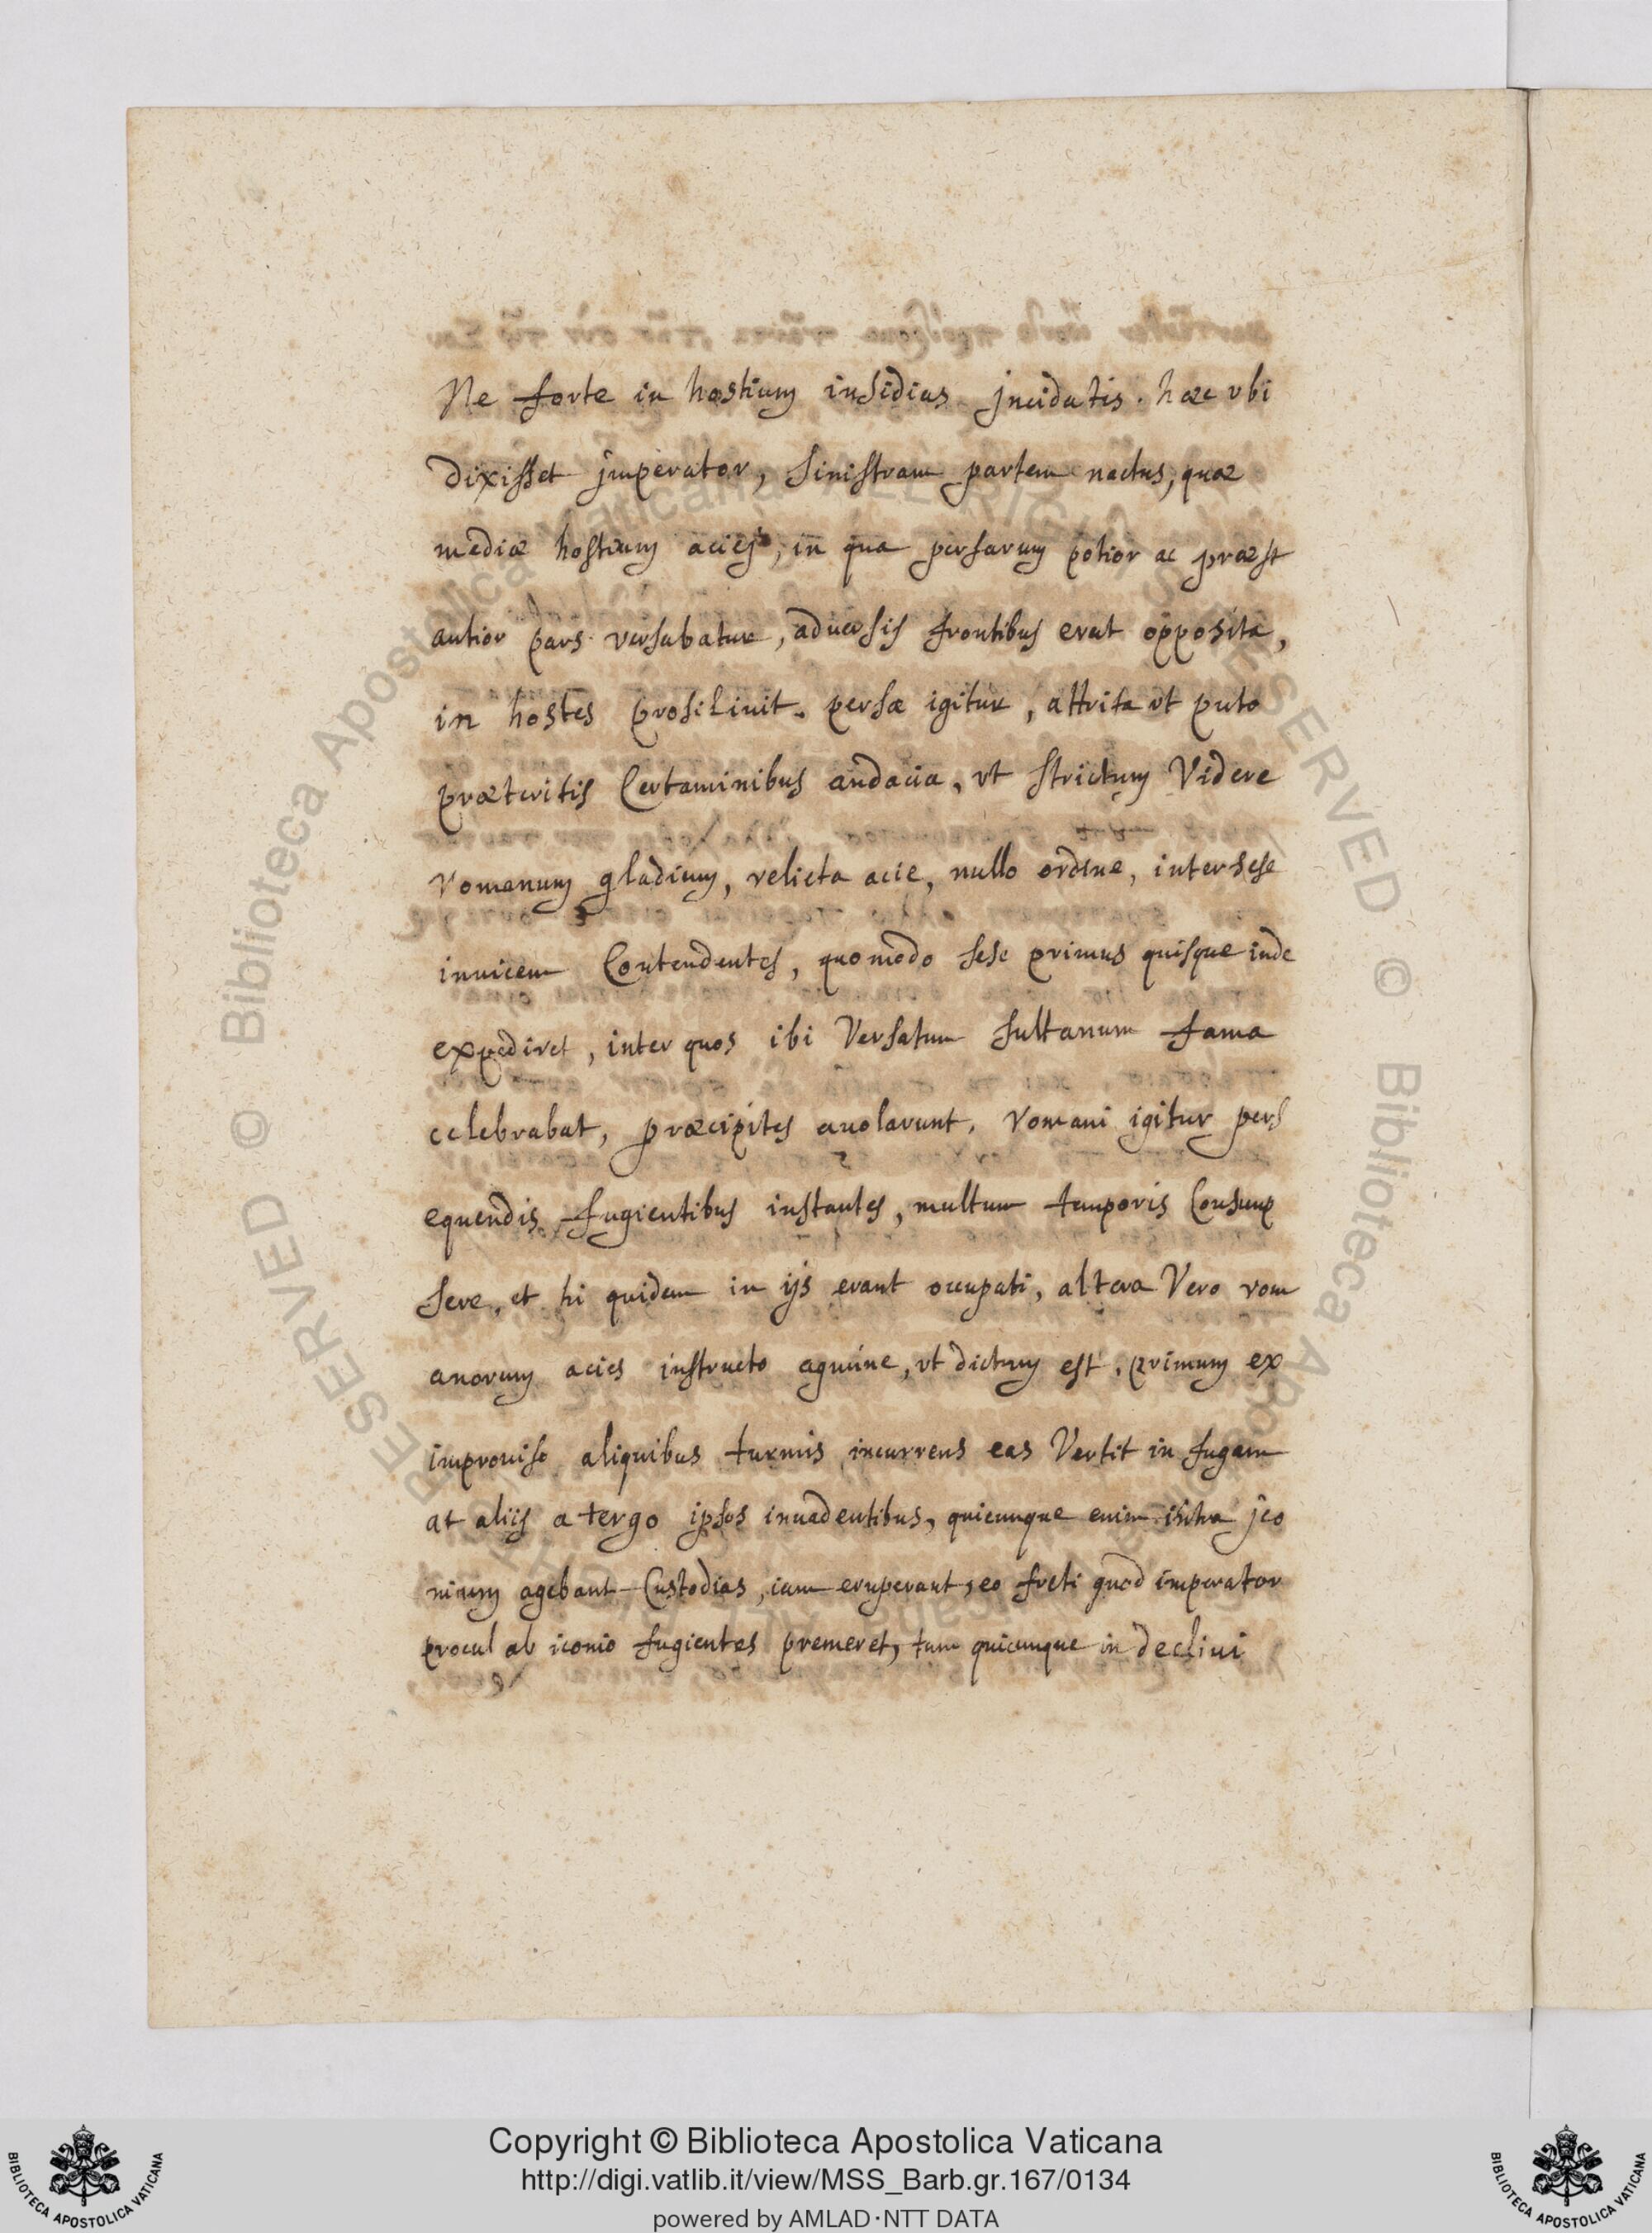 Ne forte in hostium insidias jncidatis. hæc vbi
dixisset jmperator, sinistram partem nactus, quæ
mediæ hostium aciej, in qua persarum potior ac præst
antior pars versabatur, aduersis frontibus erat opposita,
in hostes prosiliuit. persæ igitur, attrita vt puto
præteritis Certaminibus audacia, vt strictum Videre
romanum gladium, relicta acie, nullo ordine, inter sese
inuicem Contendentes, quomodo sese primus quisque inde
expediret, inter quos ibi Versatum sultanum fama
celebrabat, præcipites auolarunt. romani igitur pers
equendis fugientibus instantes, multum temporis Consump
sere, et hi quidem in ijs erant occupati, altera Vero rom
anorum acies instructo agmine, vt dictum est, primum ex
improuiso aliquibus turmis incurrens eas Vertit in fugam
at aliis a tergo ipsos inuadentibus, quicunque enim jco
nium agebant Custodias, iam eruperant, eo freti quod imperator
procul ab iconio fugientes premeret, tum quicunque in decliui
Copyright © Biblioteca Apostolica Vaticana
http://digi.vatlib.it/view/MSS_Barb.gr.167/0134
powered by AMLAD·NTT DATA